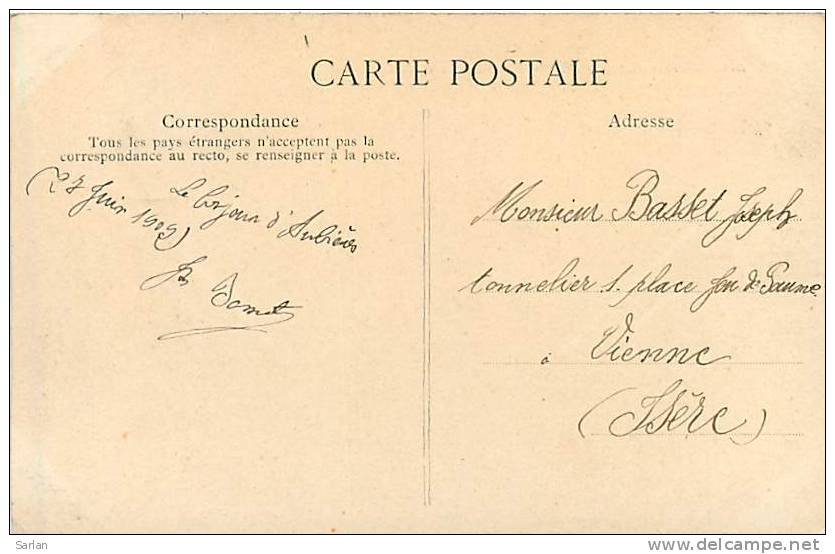 CARTE POSTALE
Correspondance
Tous les pays étrangers n'acceptent pas la
correspondance au recto, se renseigner à la poste.
(27 Juin 1909)
Le bjour d'Aubières
Adresse
Monsieur Basset Joseph
tonnelier 1. place Jeu de Paume
à Vienne
(Isère)
Sarlan
www.delcampe.net